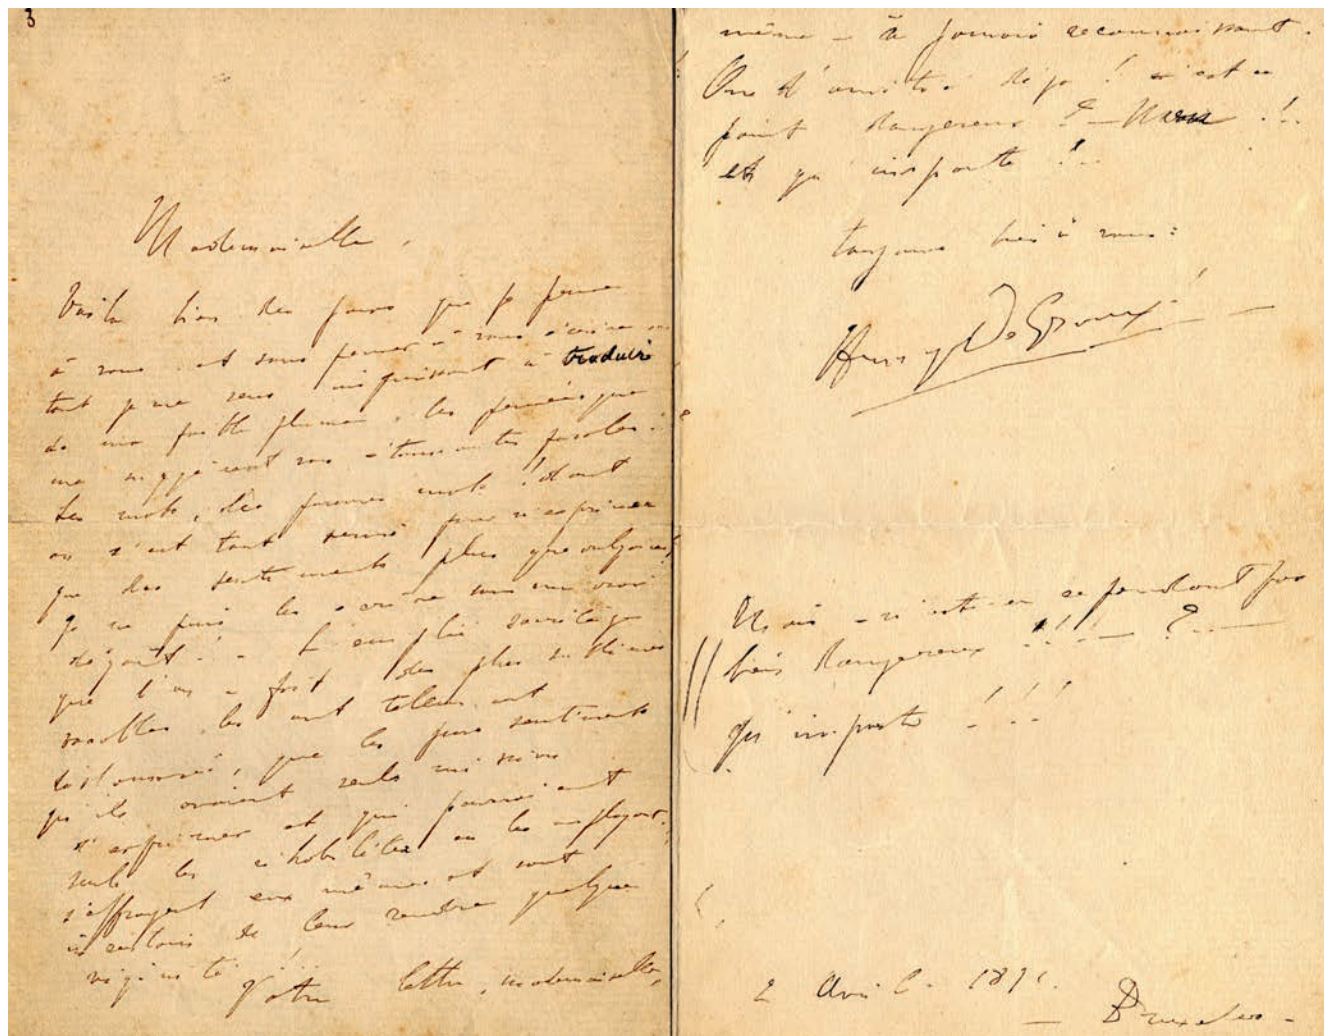 3
Mademoiselle,
Voilà bien des jours que je pense
à vous et sans penser à vous écrire
tant je me sens impuissant à traduire
de ma faible plume, les pensées que
me suggèrent vos étonnantes paroles :
Les mots, les pauvres mots ! dont
on s'est tant servi pour n'exprimer
que des sentiments plus que vulgaires !
Je ne puis les écrire sans un vrai
dégoût ! - L'emploi sacrilège
que l'on a fait des plus sublimes
les ont tellement
déshonorés, que les purs sentiments
qu'ils avaient seuls mission
d'exprimer et qui pourraient
seuls les réhabiliter en les employant,
s'effrayent eux mêmes et sont
incertains de leur rendre quelque
virginité !
Votre lettre, mademoiselle,
même - à jamais reconnaissant.
d'amitié déjà ! n'est-ce
point dangereux ? - !..
et qu'importe !..
toujours bien à vous :
Henry De Groux
Mais - n'est-ce cependant pas
bien dangereux !!! - ? -
Qu'importe !..!
2 Avril. 1891.
- Bruxelles -